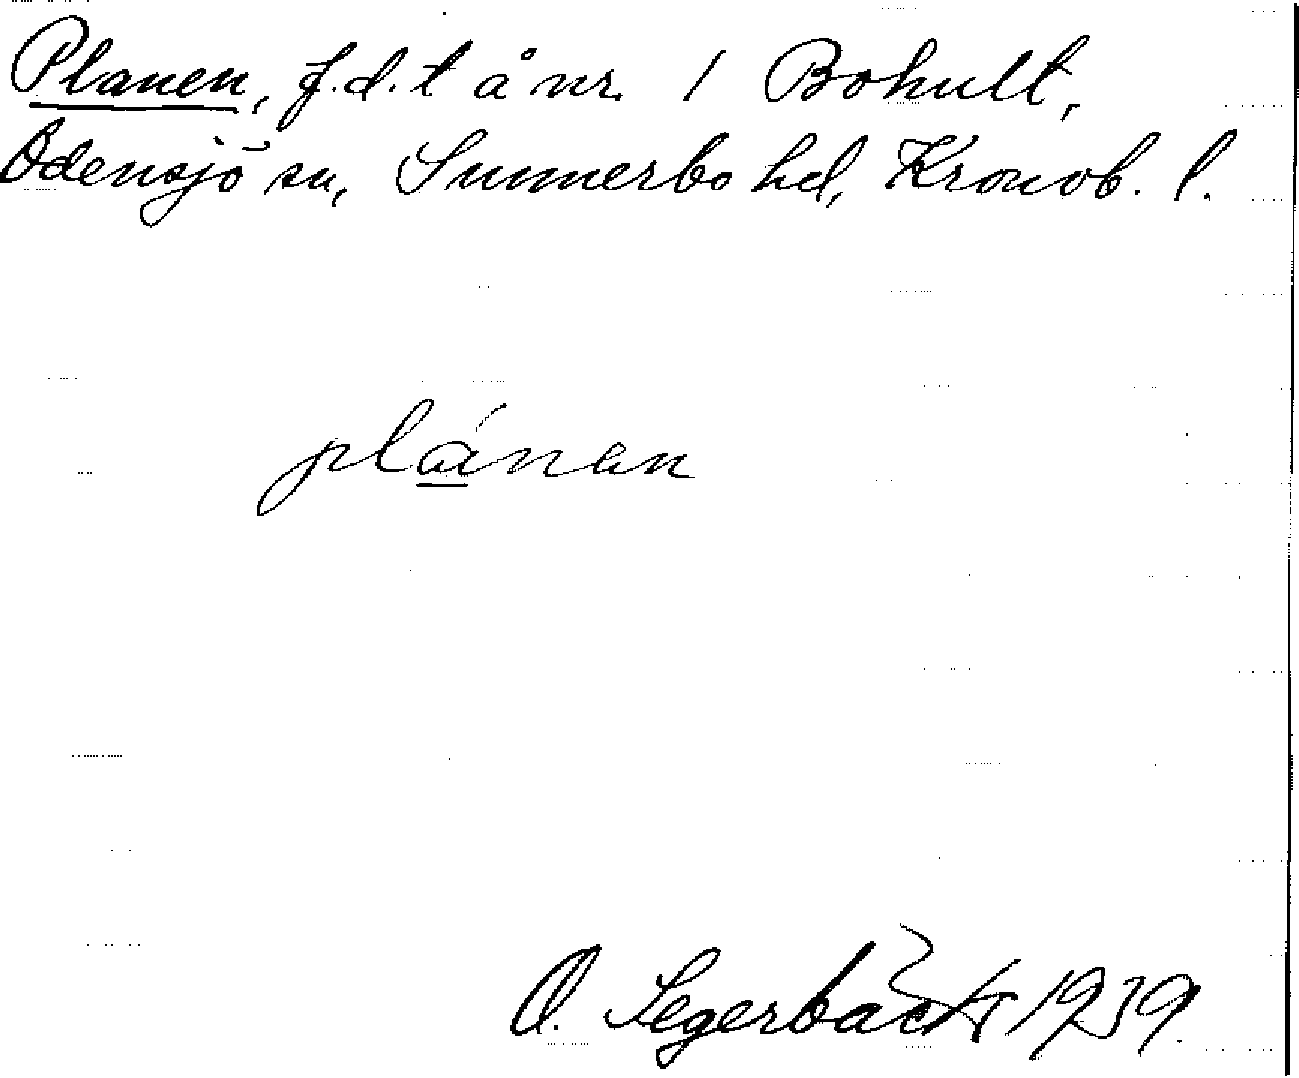 Planen, f.d. t å nr. 1 Bohult,
Odensjö sn, Sunnerbo hd, Kronob. l.
plánen
O. Segerbäck 1939.